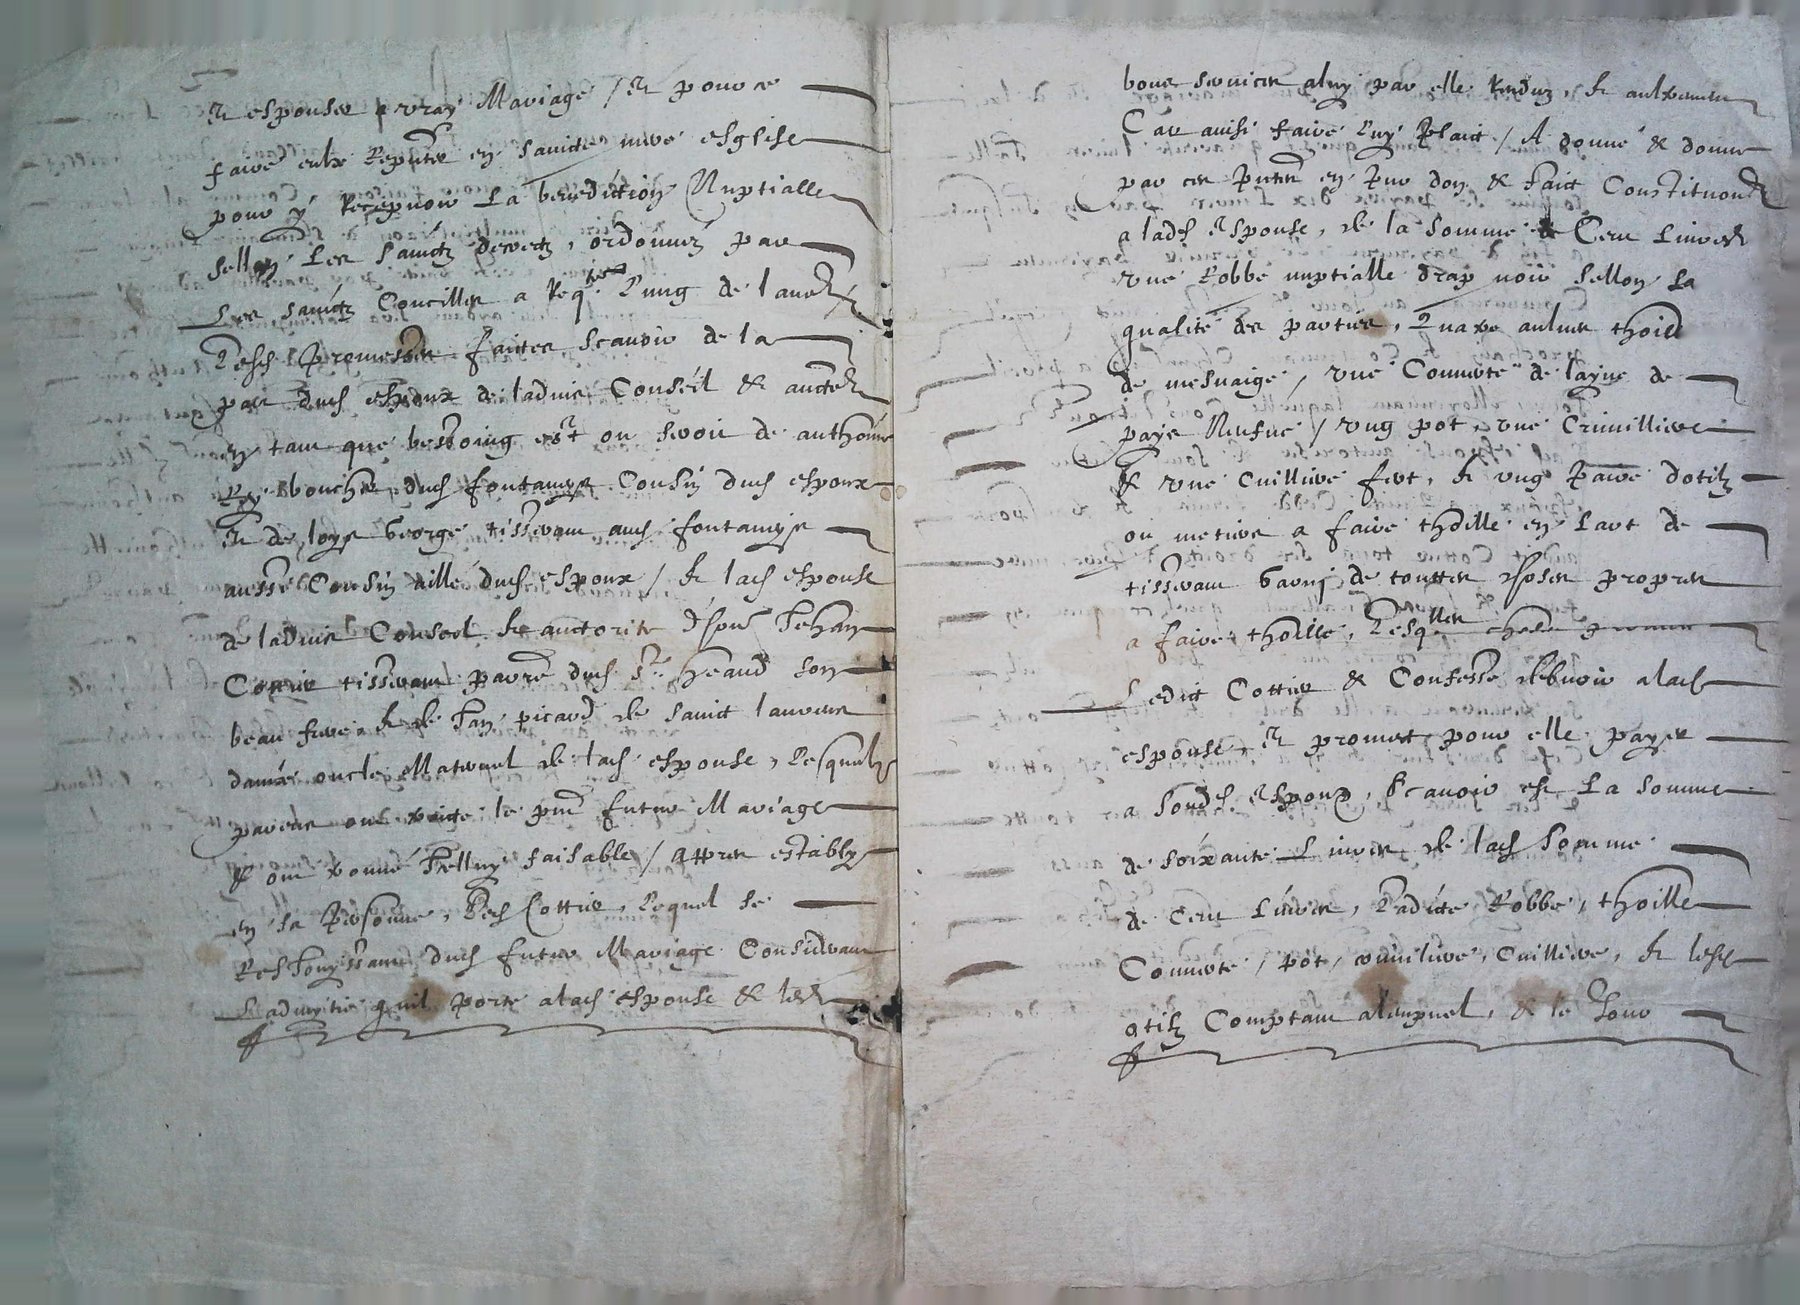 Et espouser a vray Mariage / Et pour ce
faire eulx en saincte mere esglise
pour y Recepvoir La benediction Nuptialle
sellon Les sainctz decretz, ordonnez par
Les sainctz Concilles a Reqte Lung de laue
Lesd promesses faictes scavoir de la
part dud espoux de ladvis Conseil & aucte
en tant que besoing est ou seroit de anthoine
Rey boucher dud fontanyes Cousin dud espoux
Et de loys George tisserant aud fontanyes
aussi Cousin dud espoux / & lad espouse
de ladvis Conseil & auctorite Jehan
tisserant dud St heand son
beau frere & de Jan picard de sainct
oncle Maternel de lad espouse, Lesquelz
parens ont le pnt futur Mariage
& ont faisable / Appres estably
en sa personne, Led Cottier, Lequel se
Resiouyssant dud futur Mariage Considerant
Ladmytie quil porte a lad espouse & les
bons services a luy par elle Renduz, & aultrement
Car ainsi faire Luy Plaict / A donné & donne
par ces pntes en pur don & faict Constitution
a lad espouse, de la somme de Cent Livres
une Robbe nuptialle drap noir sellon La
qualite des parties, Quatre aulnes thoille
de mesnaige, une Couverte de layne de
pays Neufve / ung pot, une Crimilliere
& une Cuilliere fert, & ung Paire dotilz
ou mestier a faire thoille en Lart de
tisserant Garny de touttes choses propres
a faire thoille, Lesqlles
Ledict Cottier & Confesse debvoir a lad
espouse, Et promect pour elle payer
a sond espoux, Scavoir est La somme
de soixante Livres de lad somme
de Cent Livres, Ladicte Robbe, thoille
Couverte, pot, crimiliere, Cuilliere, & lesd
otilz Comptant & le Jour